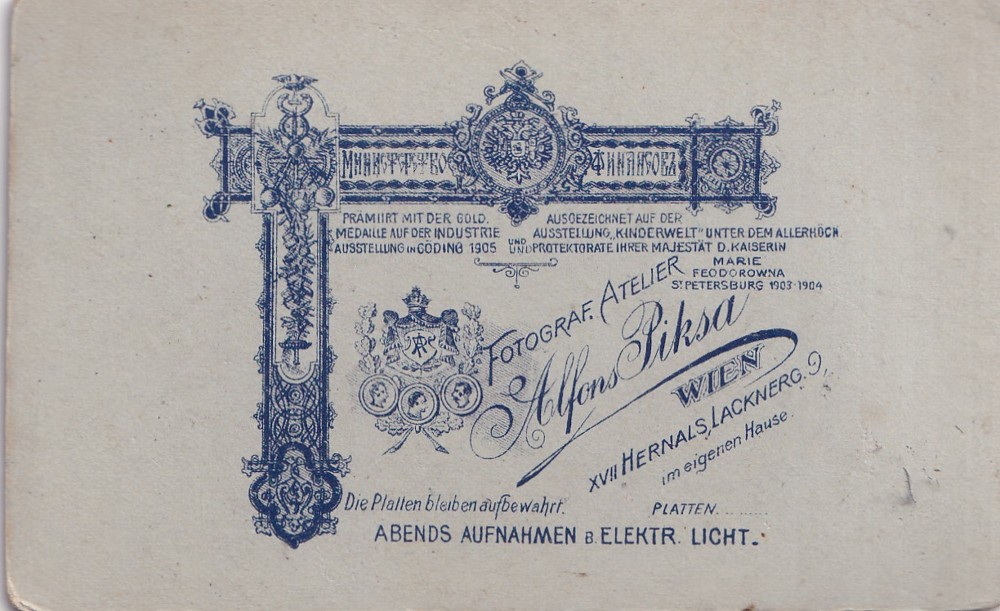 Министерство Финансовъ
PRÄMIIRT MIT DER GOLD.
MEDAILLE AUF DER INDUSTRIE
AUSSTELLUNG IN GÖDING 1905 UND
AUSGEZEICHNET AUF DER
AUSSTELLUNG „KINDERWELT" UNTER DEM ALLERHÖCH.
UND PROTEKTORATE IHRER MAJESTÄT D. KAISERIN
MARIE
FEODOROWNA
ST PETERSBURG 1903-1904
FOTOGRAF. ATELIER
Alfons Piksa
WIEN
XVII HERNALS, LACKNERG. 9,
im eigenen Hause.
Die Platten bleiben aufbewahrt.
PLATTEN.........
ABENDS AUFNAHMEN B. ELEKTR. LICHT.